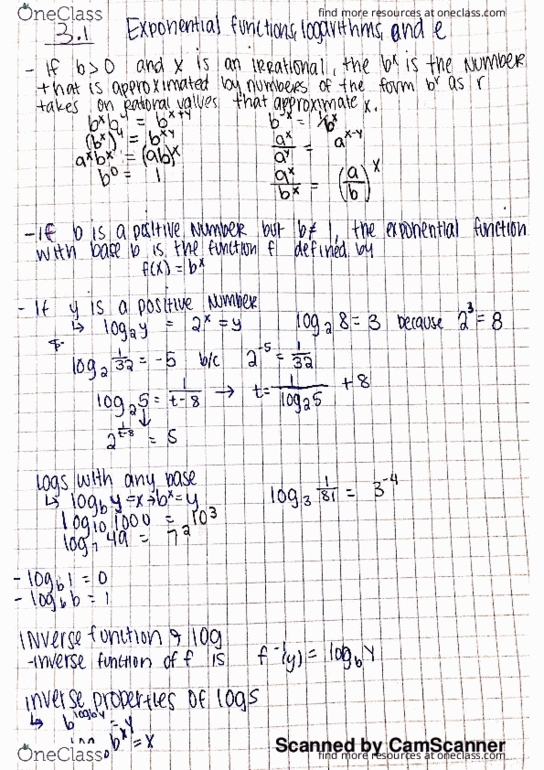 OneClass
find more resources at oneclass.com
3.1 Exponential functions, logarithms, and e
- if b>0 and x is an irrational, the bˣ is the number
that is approximated by numbers of the form bʳ as r
takes on rational values that approximate x.
bˣbʸ = bˣ⁺ʸ b⁻ˣ = 1/bˣ
(bˣ)ʸ = bˣʸ aˣ/aʸ = aˣ⁻ʸ
aˣbˣ = (ab)ˣ
b⁰ = 1 aˣ/bˣ = (a/b)ˣ
- if b is a positive number but b≠1, the exponential function
with base b is the function f defined by
f(x) = bˣ
- If y is a positive number
↳ log₂y = 2ˣ = y log₂8 = 3 because 2³ = 8
log₂ 1/32 = -5 b/c 2⁻⁵ = 1/32
log₂5 = 1/(t-8) → t = 1/log₂5 + 8
2^(1/(t-8)) = 5
logs with any base
↳ log_b y = x → bˣ = y log₃ 1/81 = 3⁻⁴
log₁₀1000 = 10³
log₇49 = 7²
- log_b 1 = 0
- log_b b = 1
inverse function & log
- inverse function of f is f⁻¹(y) = log_b y
inverse properties of logs
↳ b^(log_b y) = y
bˣ = x
OneClass
Scanned by CamScanner
find more resources at oneclass.com